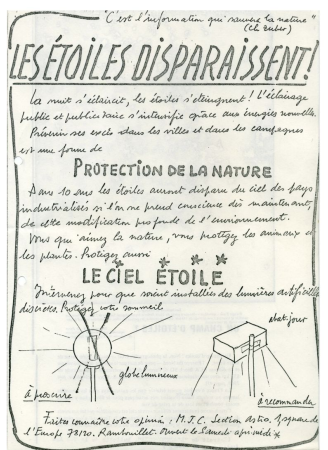 "C'est l'information qui sauvera la nature"
LES ÉTOILES DISPARAISSENT!
La nuit s'éclaircit, les étoiles s'éteignent! L'éclairage
public et publicitaire s'intensifie grâce aux énergies nouvelles.
Prévenir ses excès dans les villes et dans les campagnes
est une forme de
PROTECTION DE LA NATURE
Dans 10 ans les étoiles auront disparu du ciel des pays
industrialisés si l'on ne prend conscience dès maintenant,
de cette modification profonde de l'environnement.
Vous qui aimez la nature, vous protégez les animaux et
les plantes. Protégez aussi
LE CIEL ÉTOILÉ
Intervenez pour que soient installées des lumières artificielles
discrètes. Protégez votre sommeil
abat-jour
globe lumineux
à proscrire
à recommander
Faites connaître votre opinion : M.J.C. Section Astro. square de
l'Europe 78120. Rambouillet. ouvert le Samedi après midi